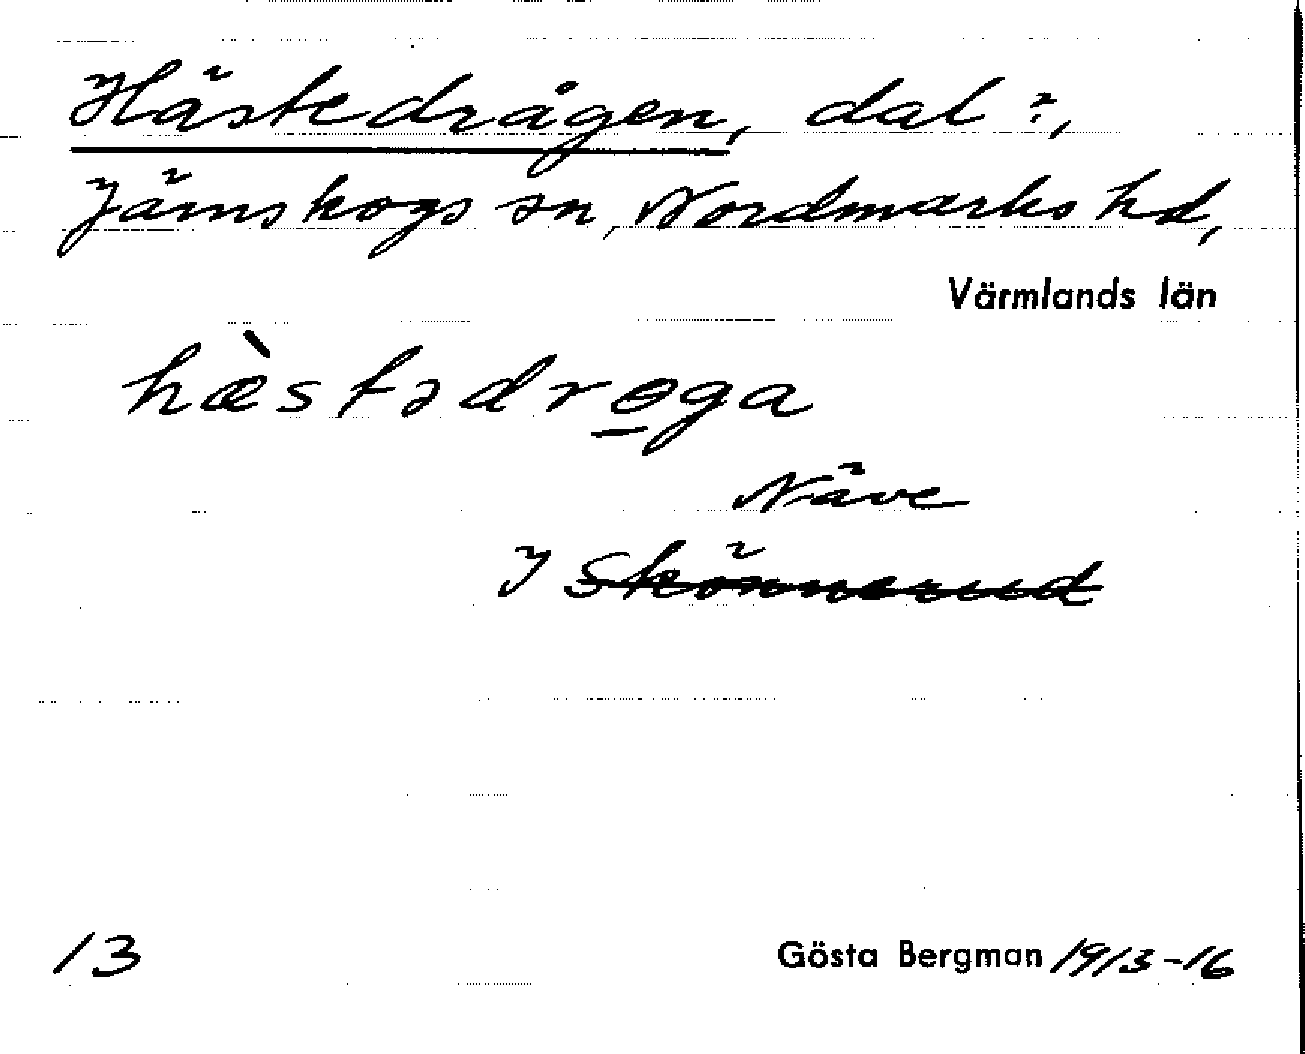 Hästedrågen, dal?,
Järnskogs sn, Nordmarks hd,
Värmlands län
hæ̀stədro̲ga
Näve
I Skönnerud
13
Gösta Bergman 1913-16